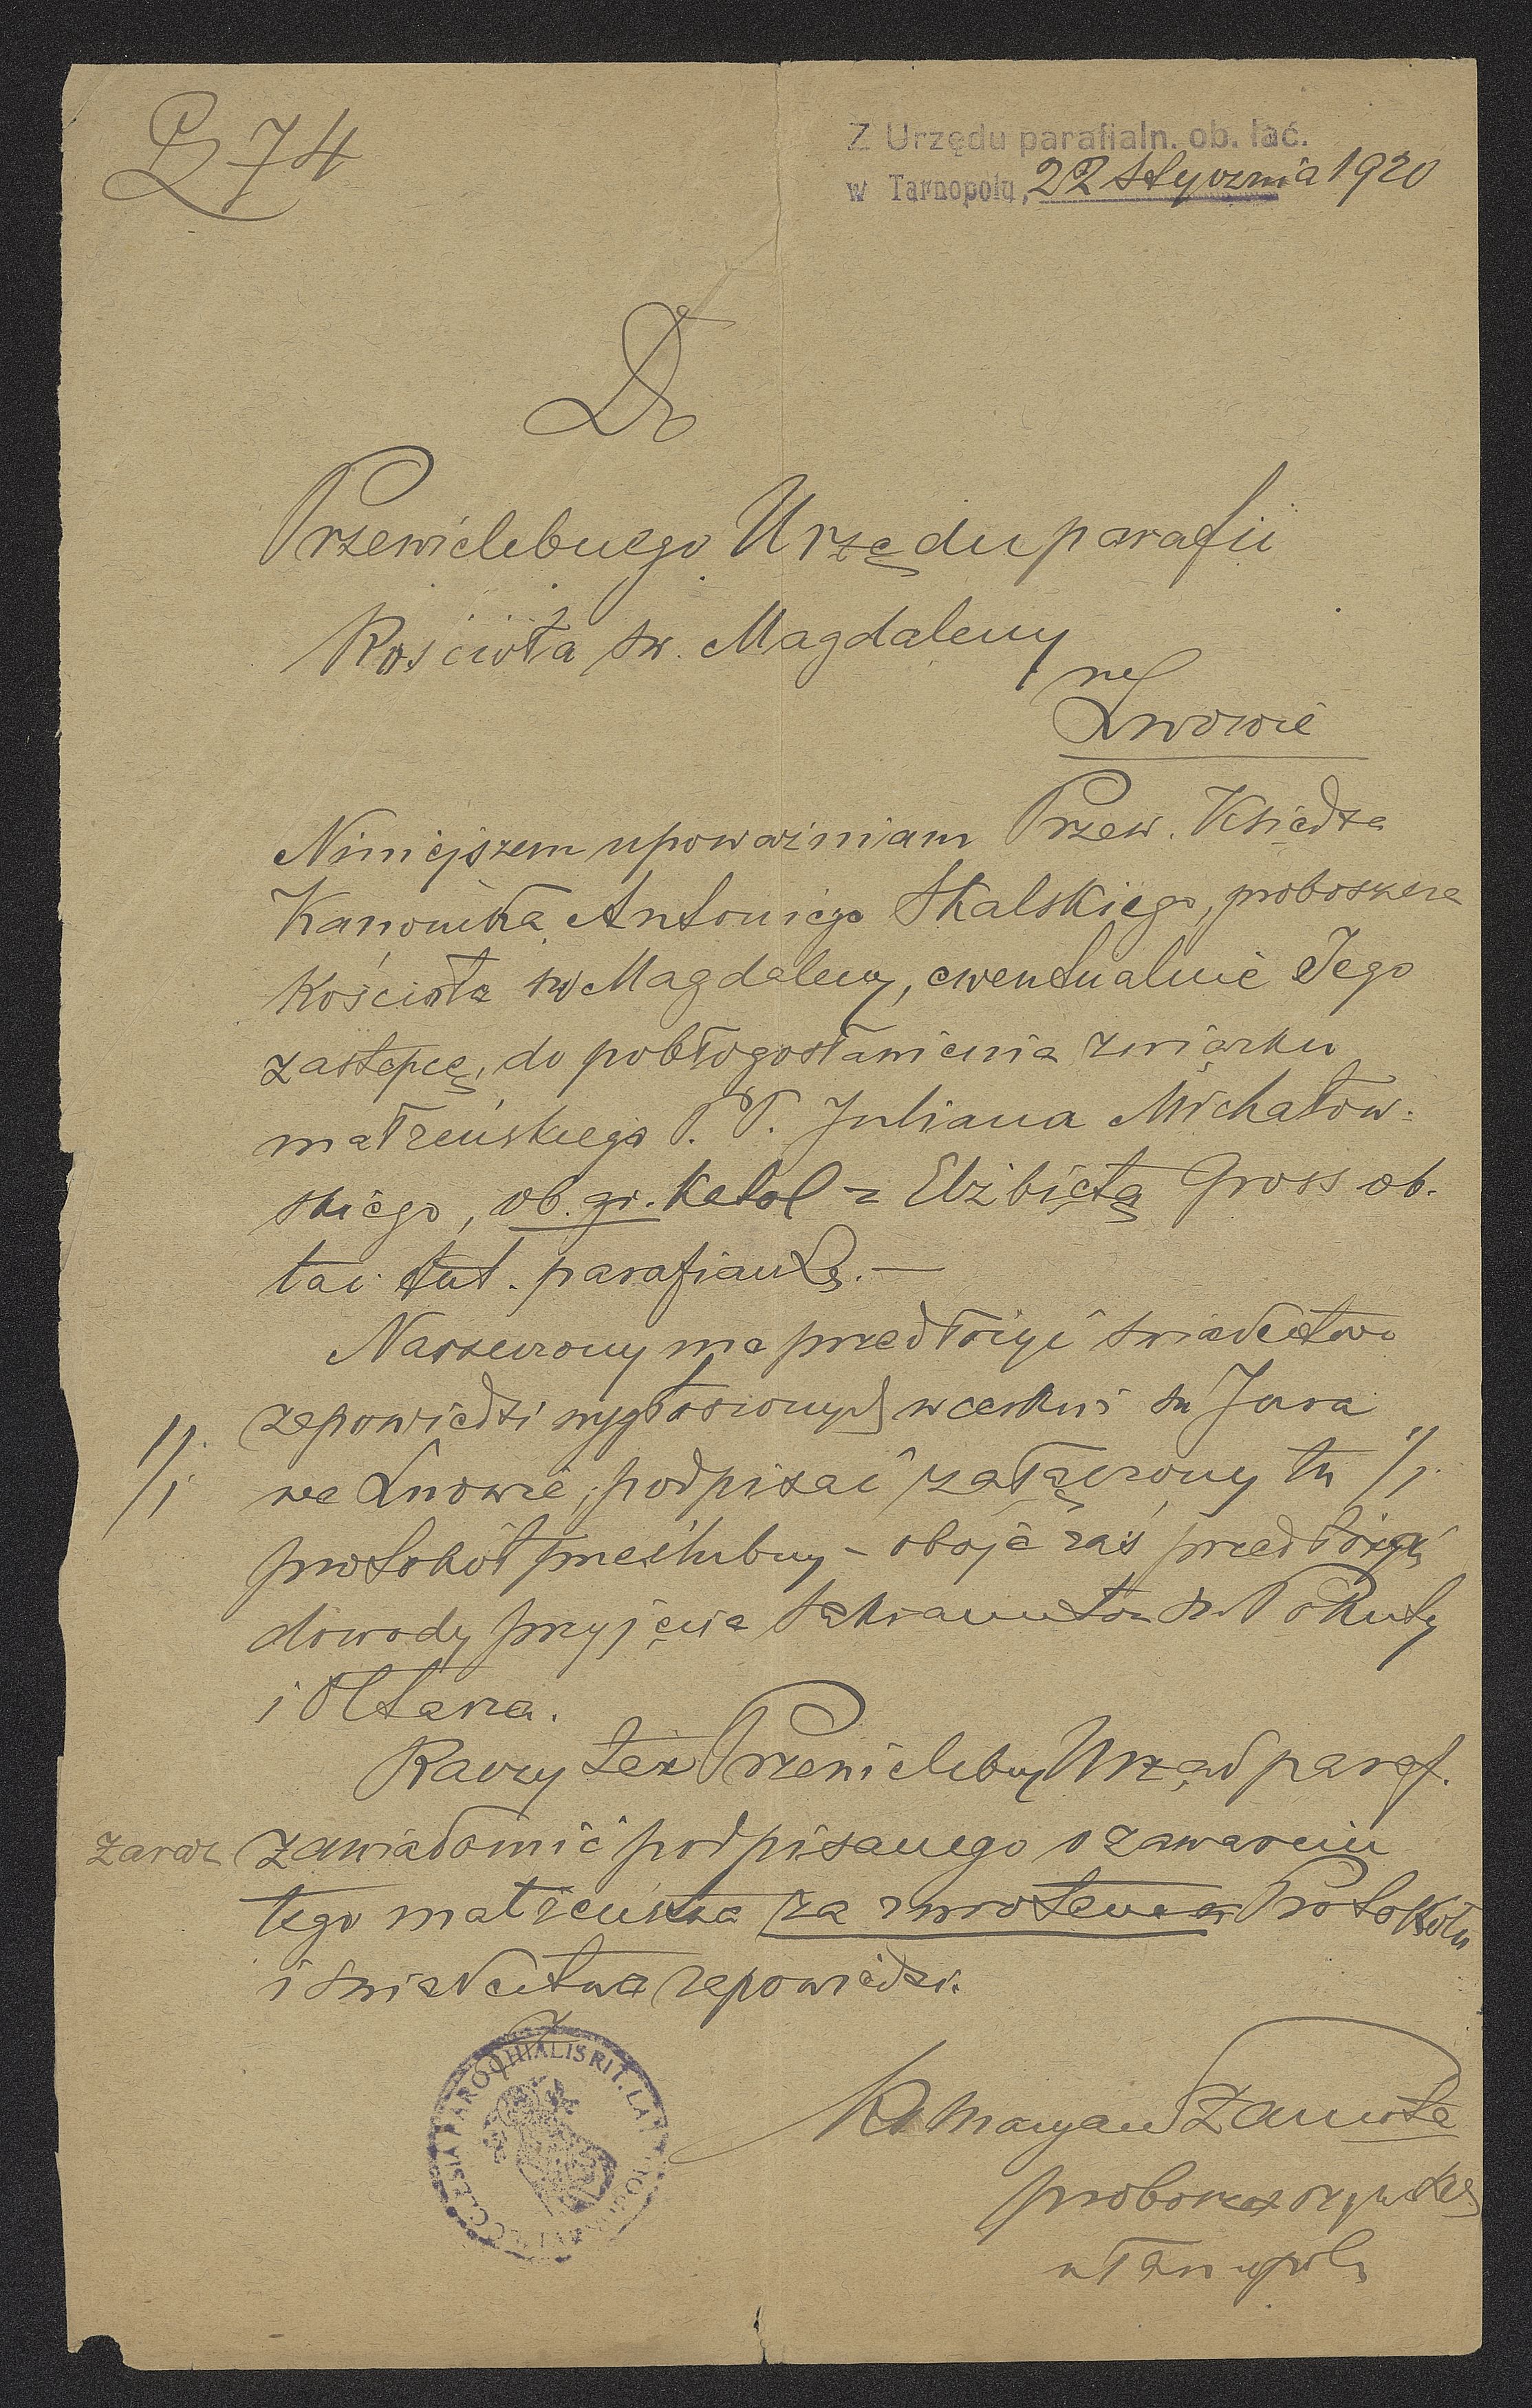 L 74
Z Urzędu parafialn. ob. łać.
w Tarnopolu, 22 stycznia 1920
Do
Przewielebnego Urzędu parafii
Kościoła św. Magdaleny
we
Lwowie
Niniejszem upoważniam Przew. Księdza
Kanonika Antoniego Skalskiego, proboszcza
Kościoła św Magdaleny, ewentualnie Jego
zastępcę, do pobłogosławienia związku
małżeńskiego P. P. Juliana Michałow-
skiego, ob. gr. katol z Elżbietą Gross ob.
łać. tut. parafianką. —
Narzeczony ma przedłożyć świadectwo
zapowiedzi wygłoszonych w cerkwi św Jura
1/. we Lwowie, podpisać załączony tu 1/.
protokół przedślubny — oboje zaś przedłożyć
dowody przyjęcia Sakramentów św. Pokuty
i Ołtarza.
Raczy też Przewielebny Urząd paraf.
zaraz zawiadomić podpisanego o zawarciu
tego małżeństwa za zwrotem Protokołu
i świadectwa zapowiedzi.
ECCLESIA PAROCHIALIS RIT. LAT.
Ks Maryan
proboszcz
w Tarnopolu